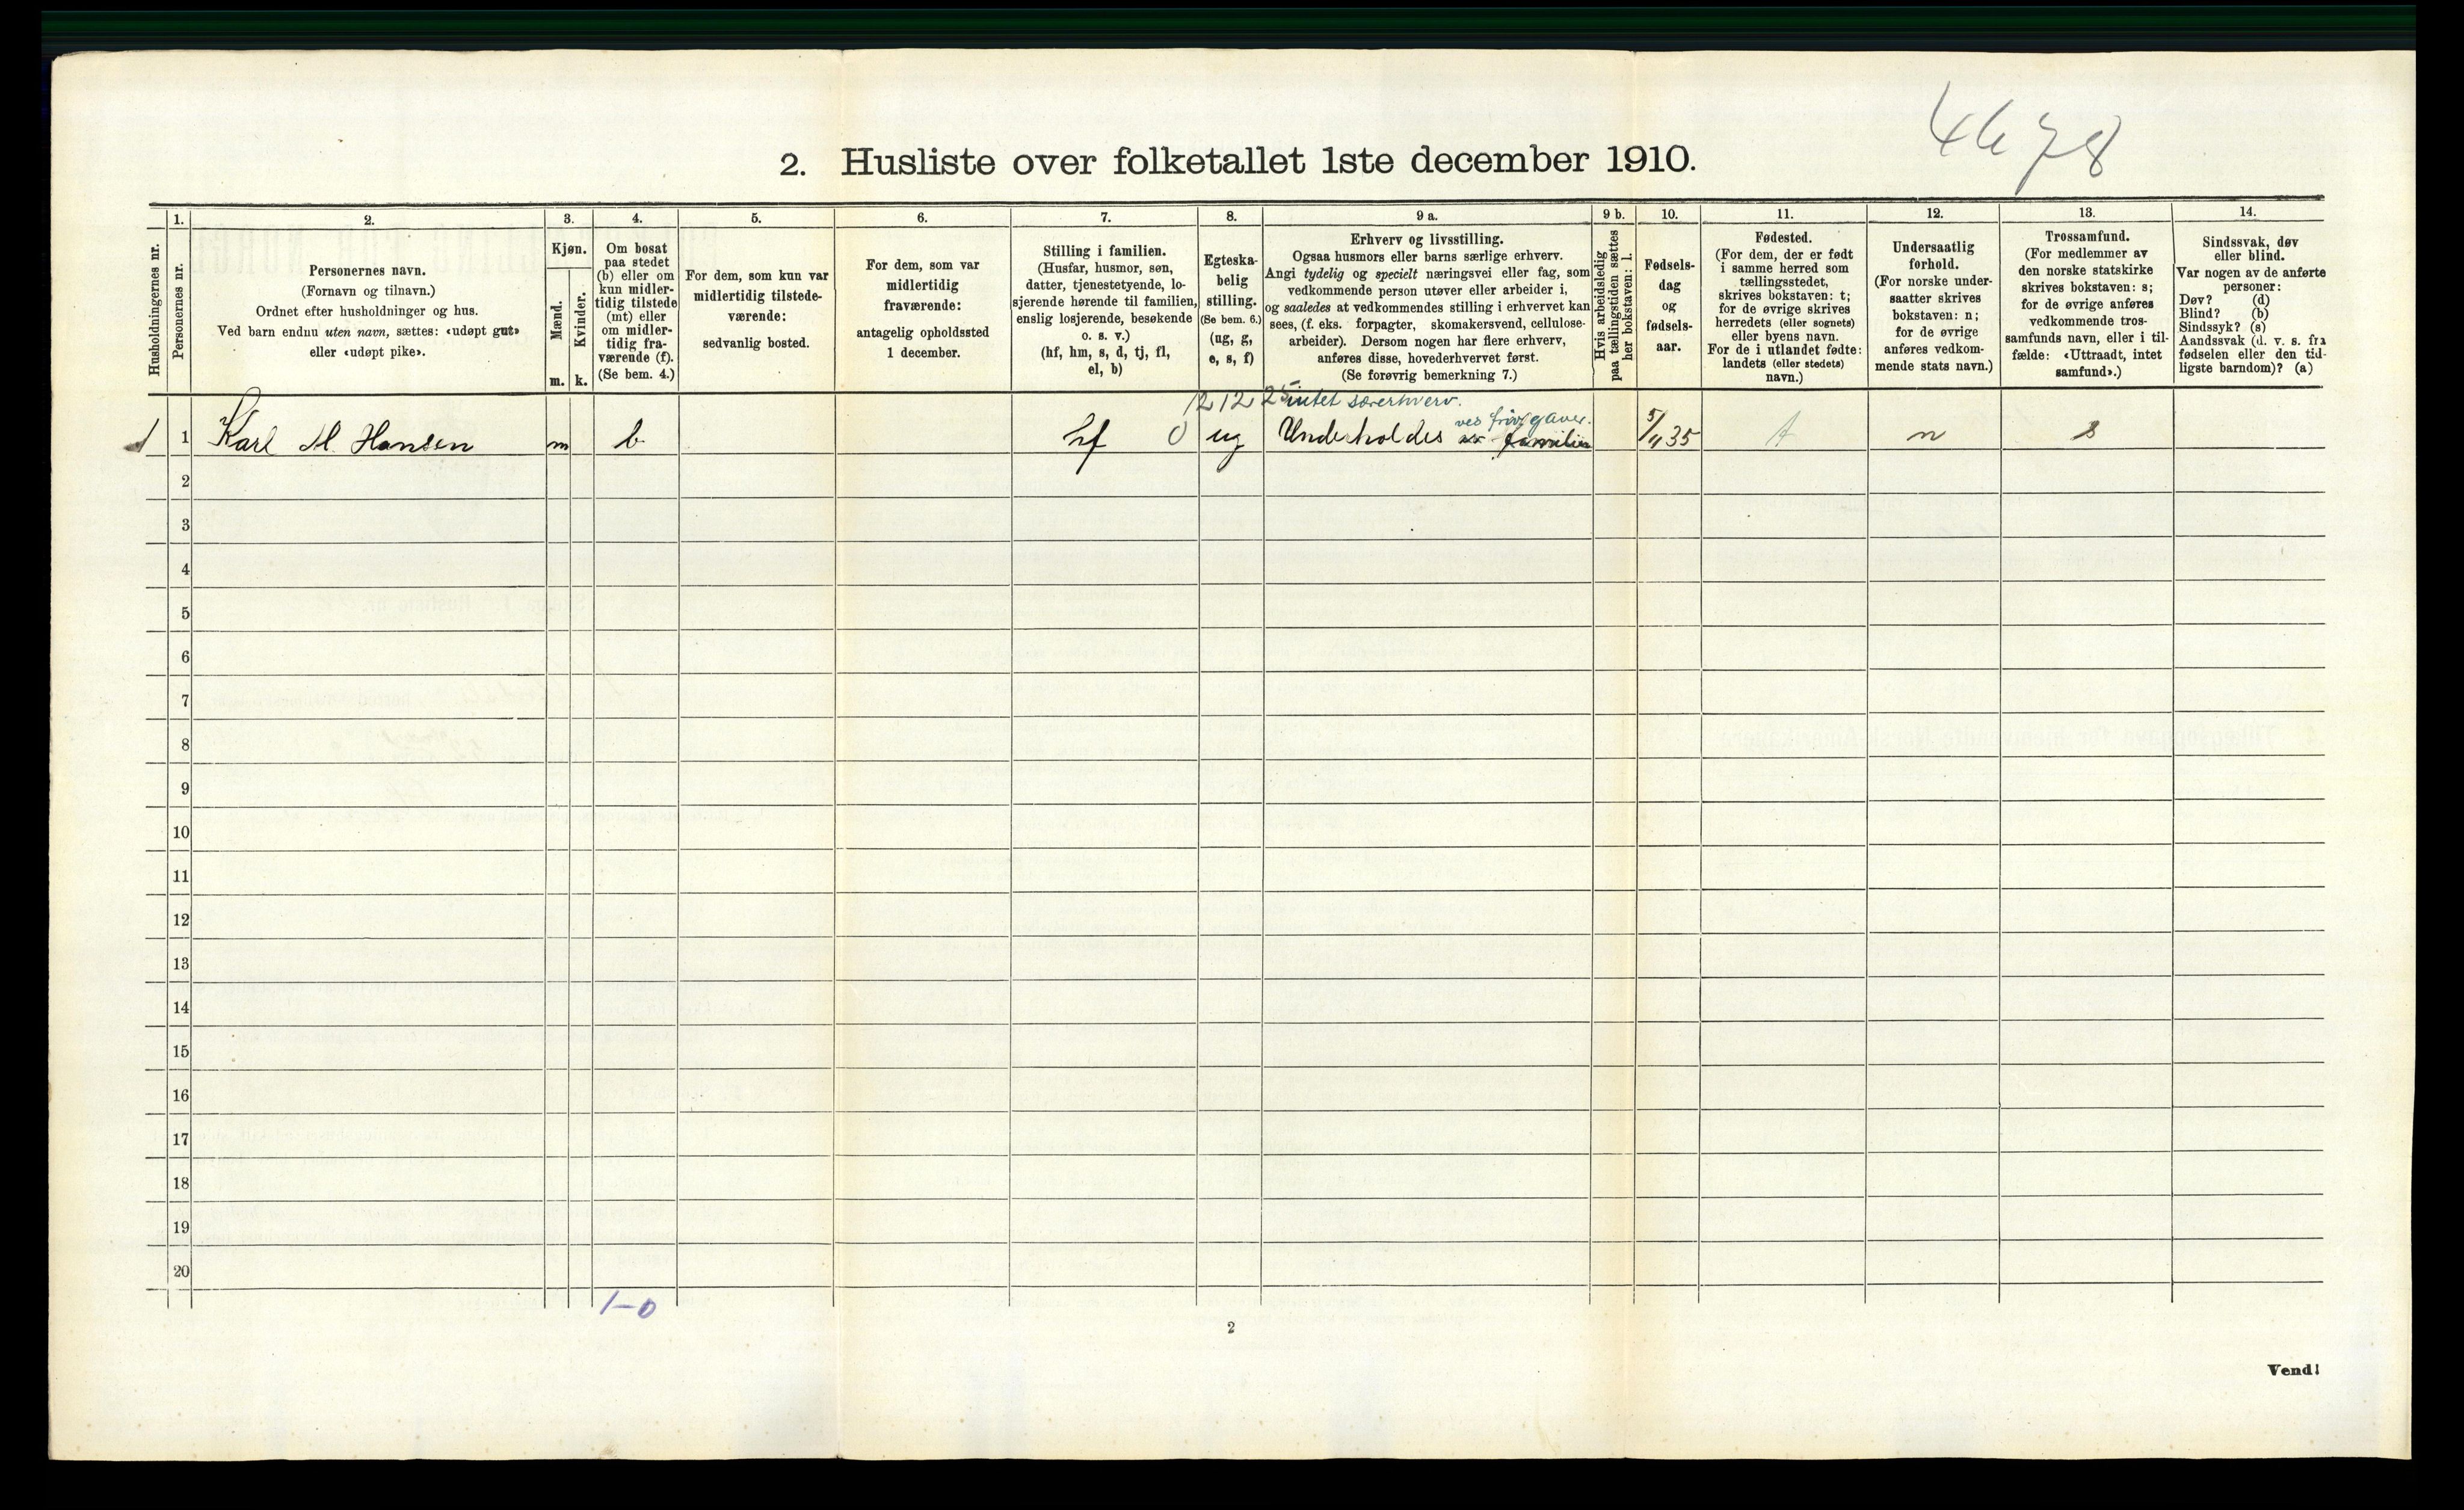 4678
2. Husliste over folketallet 1ste december 1910.
Husholdningernes nr.
1.
Personernes nr.
2.
Personernes navn.
(Fornavn og tilnavn.)
Ordnet efter husholdninger og hus.
Ved barn endnu uten navn, sættes: «udøpt gut»
eller «udøpt pike».
3.
Kjøn.
Mænd.
Kvinder.
m. k.
4.
Om bosat
paa stedet
(b) eller om
kun midler-
tidig tilstede
(mt) eller
om midler-
tidig fra-
værende (f).
(Se bem. 4.)
5.
For dem, som kun var
midlertidig tilstede-
værende:
sedvanlig bosted.
6.
For dem, som var
midlertidig
fraværende:
antagelig opholdssted
1 december.
7.
Stilling i familien.
(Husfar, husmor, søn,
datter, tjenestetyende, lo-
sjerende hørende til familien,
enslig losjerende, besøkende
o. s. v.)
(hf, hm, s, d, tj, fl,
el, b)
8.
Egteska-
belig
stilling.
(Se bem. 6.)
(ug, g,
e, s, f)
9 a.
Erhverv og livsstilling.
Ogsaa husmors eller barns særlige erhverv.
Angi tydelig og specielt næringsvei eller fag, som
vedkommende person utøver eller arbeider i,
og saaledes at vedkommendes stilling i erhvervet kan
sees, (f. eks. forpagter, skomakersvend, cellulose-
arbeider). Dersom nogen har flere erhverv,
anføres disse, hovederhvervet først.
(Se forøvrig bemerkning 7.)
9 b.
Hvis arbeidsledig
paa tællingstiden sættes
her bokstaven: l.
10.
Fødsels-
dag
og
fødsels-
aar.
11.
Fødested.
(For dem, der er født
i samme herred som
tællingsstedet,
skrives bokstaven: t;
for de øvrige skrives
herredets (eller sognets)
eller byens navn.
For de i utlandet fødte:
landets (eller stedets)
navn.)
12.
Undersaatlig
forhold.
(For norske under-
saatter skrives
bokstaven: n;
for de øvrige
anføres vedkom-
mende stats navn.)
13.
Trossamfund.
(For medlemmer av
den norske statskirke
skrives bokstaven: s;
for de øvrige anføres
vedkommende tros-
samfunds navn, eller i til-
fælde: «Uttraadt, intet
samfund».)
14.
Sindssvak, døv
eller blind.
Var nogen av de anførte
personer:
Døv? (d)
Blind? (b)
Sindssyk? (s)
Aandssvak (d. v. s. fra
fødselen eller den tid-
ligste barndom)? (a)
12 12 25 intet særerhverv.
ved friv. gaver.
1 1 Karl M. Hansen m b hf 0 ug Underholdes av familien 5/4 35 t n s
2
3
4
5
6
7
8
9
10
11
12
13
14
15
16
17
18
19
20
1-0
2
Vend!